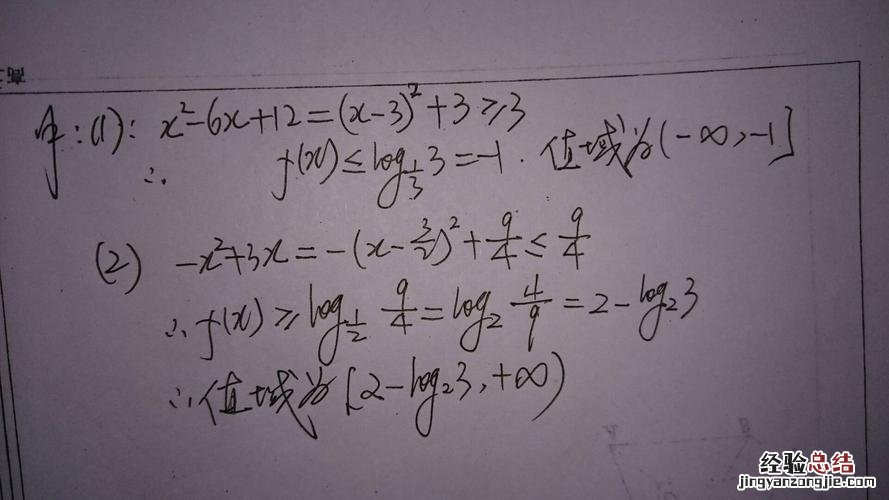 解:(1): x²-6x+12=(x-3)²+3≥3
∴ f(x)≤log_{1/3}3=-1. 值域为(-∞,-1]
(2) -x²+3x=-(x-3/2)²+9/4≤9/4
∴f(x)≥log_{1/2} 9/4=log₂ 4/9=2-log₂3
∴值域为[2-log₂3,+∞)
经验总结
jingyanzongjie.com